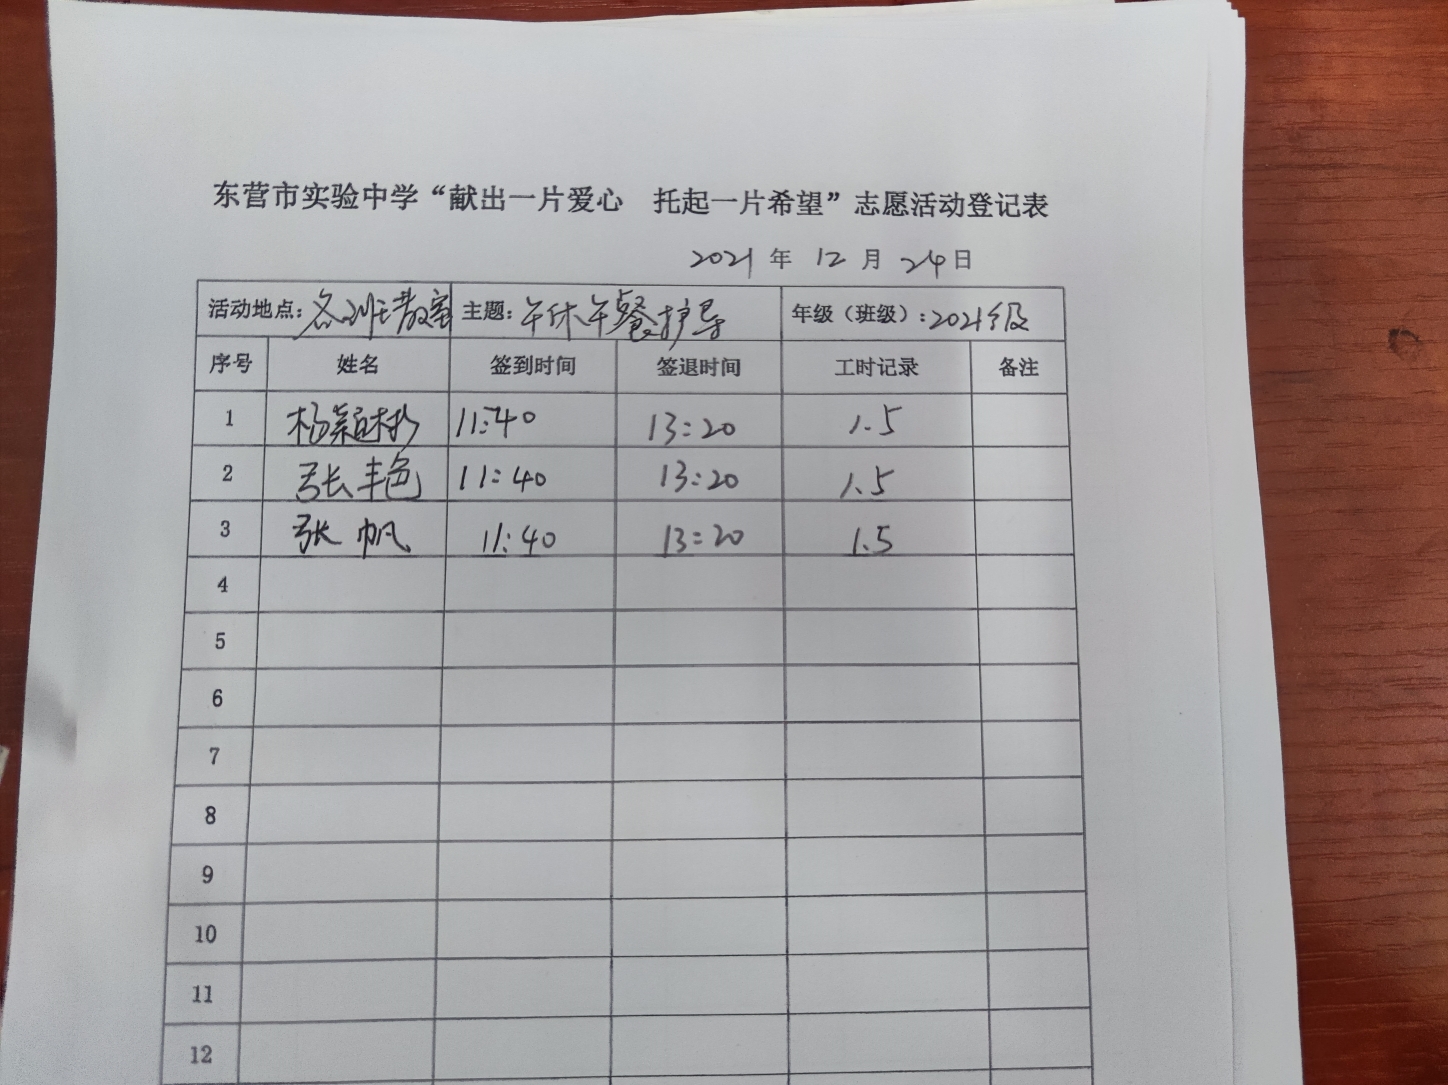 东营市实验中学“献出一片爱心 托起一片希望”志愿活动登记表
2021年 12月 24日
活动地点：各班教室 主题：午休午餐护导 年级（班级）：2021级
序号 姓名 签到时间 签退时间 工时记录 备注
1 杨颖 11:40 13:20 1.5
2 张丰色 11:40 13:20 1.5
3 张帆 11:40 13:20 1.5
4
5
6
7
8
9
10
11
12